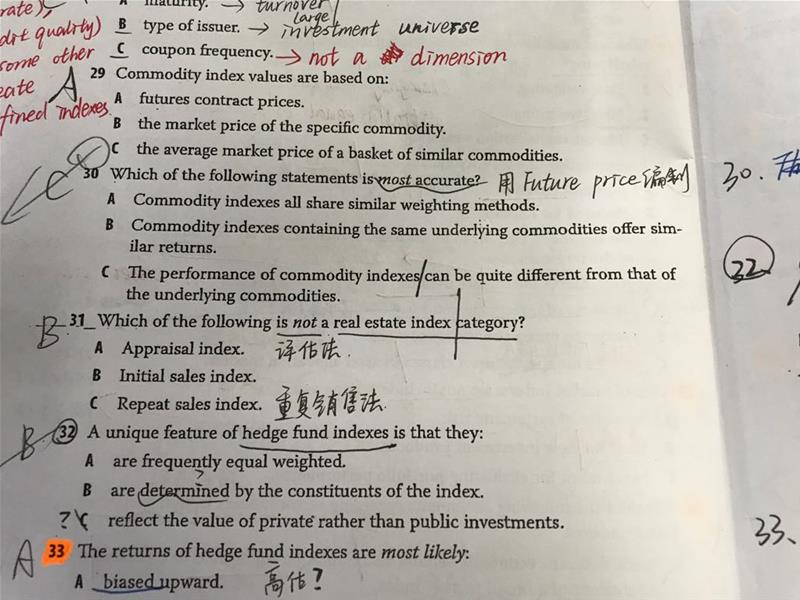 rate), A maturity. → turnover
large
dit quality) B type of issuer. → investment universe
some other C coupon frequency. → not a dimension
eate A 29 Commodity index values are based on:
fined indexes. A futures contract prices.
B the market price of the specific commodity.
C the average market price of a basket of similar commodities.
C 30 Which of the following statements is most accurate? 用 Future price 编制 30.
A Commodity indexes all share similar weighting methods.
B Commodity indexes containing the same underlying commodities offer sim-
ilar returns.
32
C The performance of commodity indexes can be quite different from that of
the underlying commodities.
B 31 Which of the following is not a real estate index category?
A Appraisal index. 评估法.
B Initial sales index.
C Repeat sales index. 重复销售法.
B 32 A unique feature of hedge fund indexes is that they:
A are frequently equal weighted.
?
B are determined by the constituents of the index.
? C reflect the value of private rather than public investments.
33.
A 33 The returns of hedge fund indexes are most likely:
A biased upward. 高估?